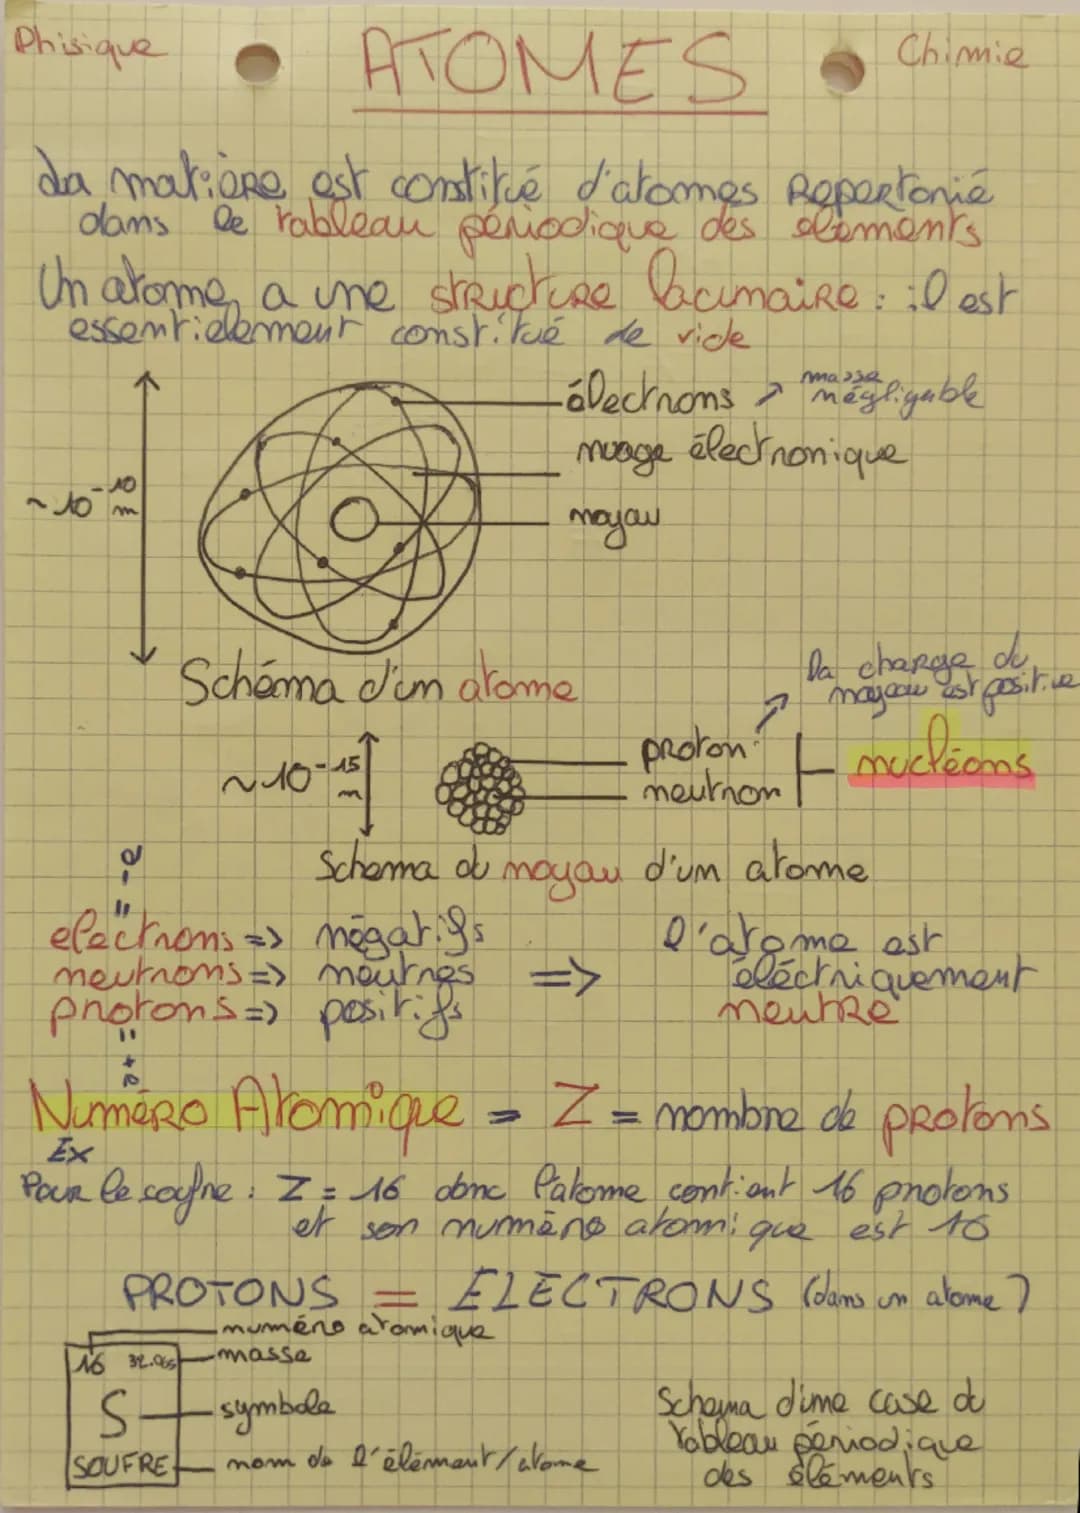 Phisique
ATOMES
Chimie
La matière est constitué d'atomes Repertorié
dans le tableau périodique des elements
Un atome a une structure lacunaire : il est
essentielement constitué de vide
électrons ↗ masse négligable
nuage électronique
~10⁻¹⁰ m
noyau
Schéma d'un atome
la charge du
noyau est positive
~10⁻¹⁵ m
proton
neutron
nucléons
Schema du noyau d'un atome
-e
=
electrons => négatifs
neutrons => neutres
protons => positifs
=
+e
=> l'atome est
éléctriquement
neutre
Numéro Atomique = Z = nombre de protons
Ex
Pour le soufre : Z = 16 donc l'atome contient 16 protons
et son numéro atomique est 16
PROTONS = ELECTRONS (dans un atome)
numéro atomique
16 32.065
masse
S
symbole
SOUFRE
nom de l'élément/atome
Schema d'une case du
tableau périodique
des éléments